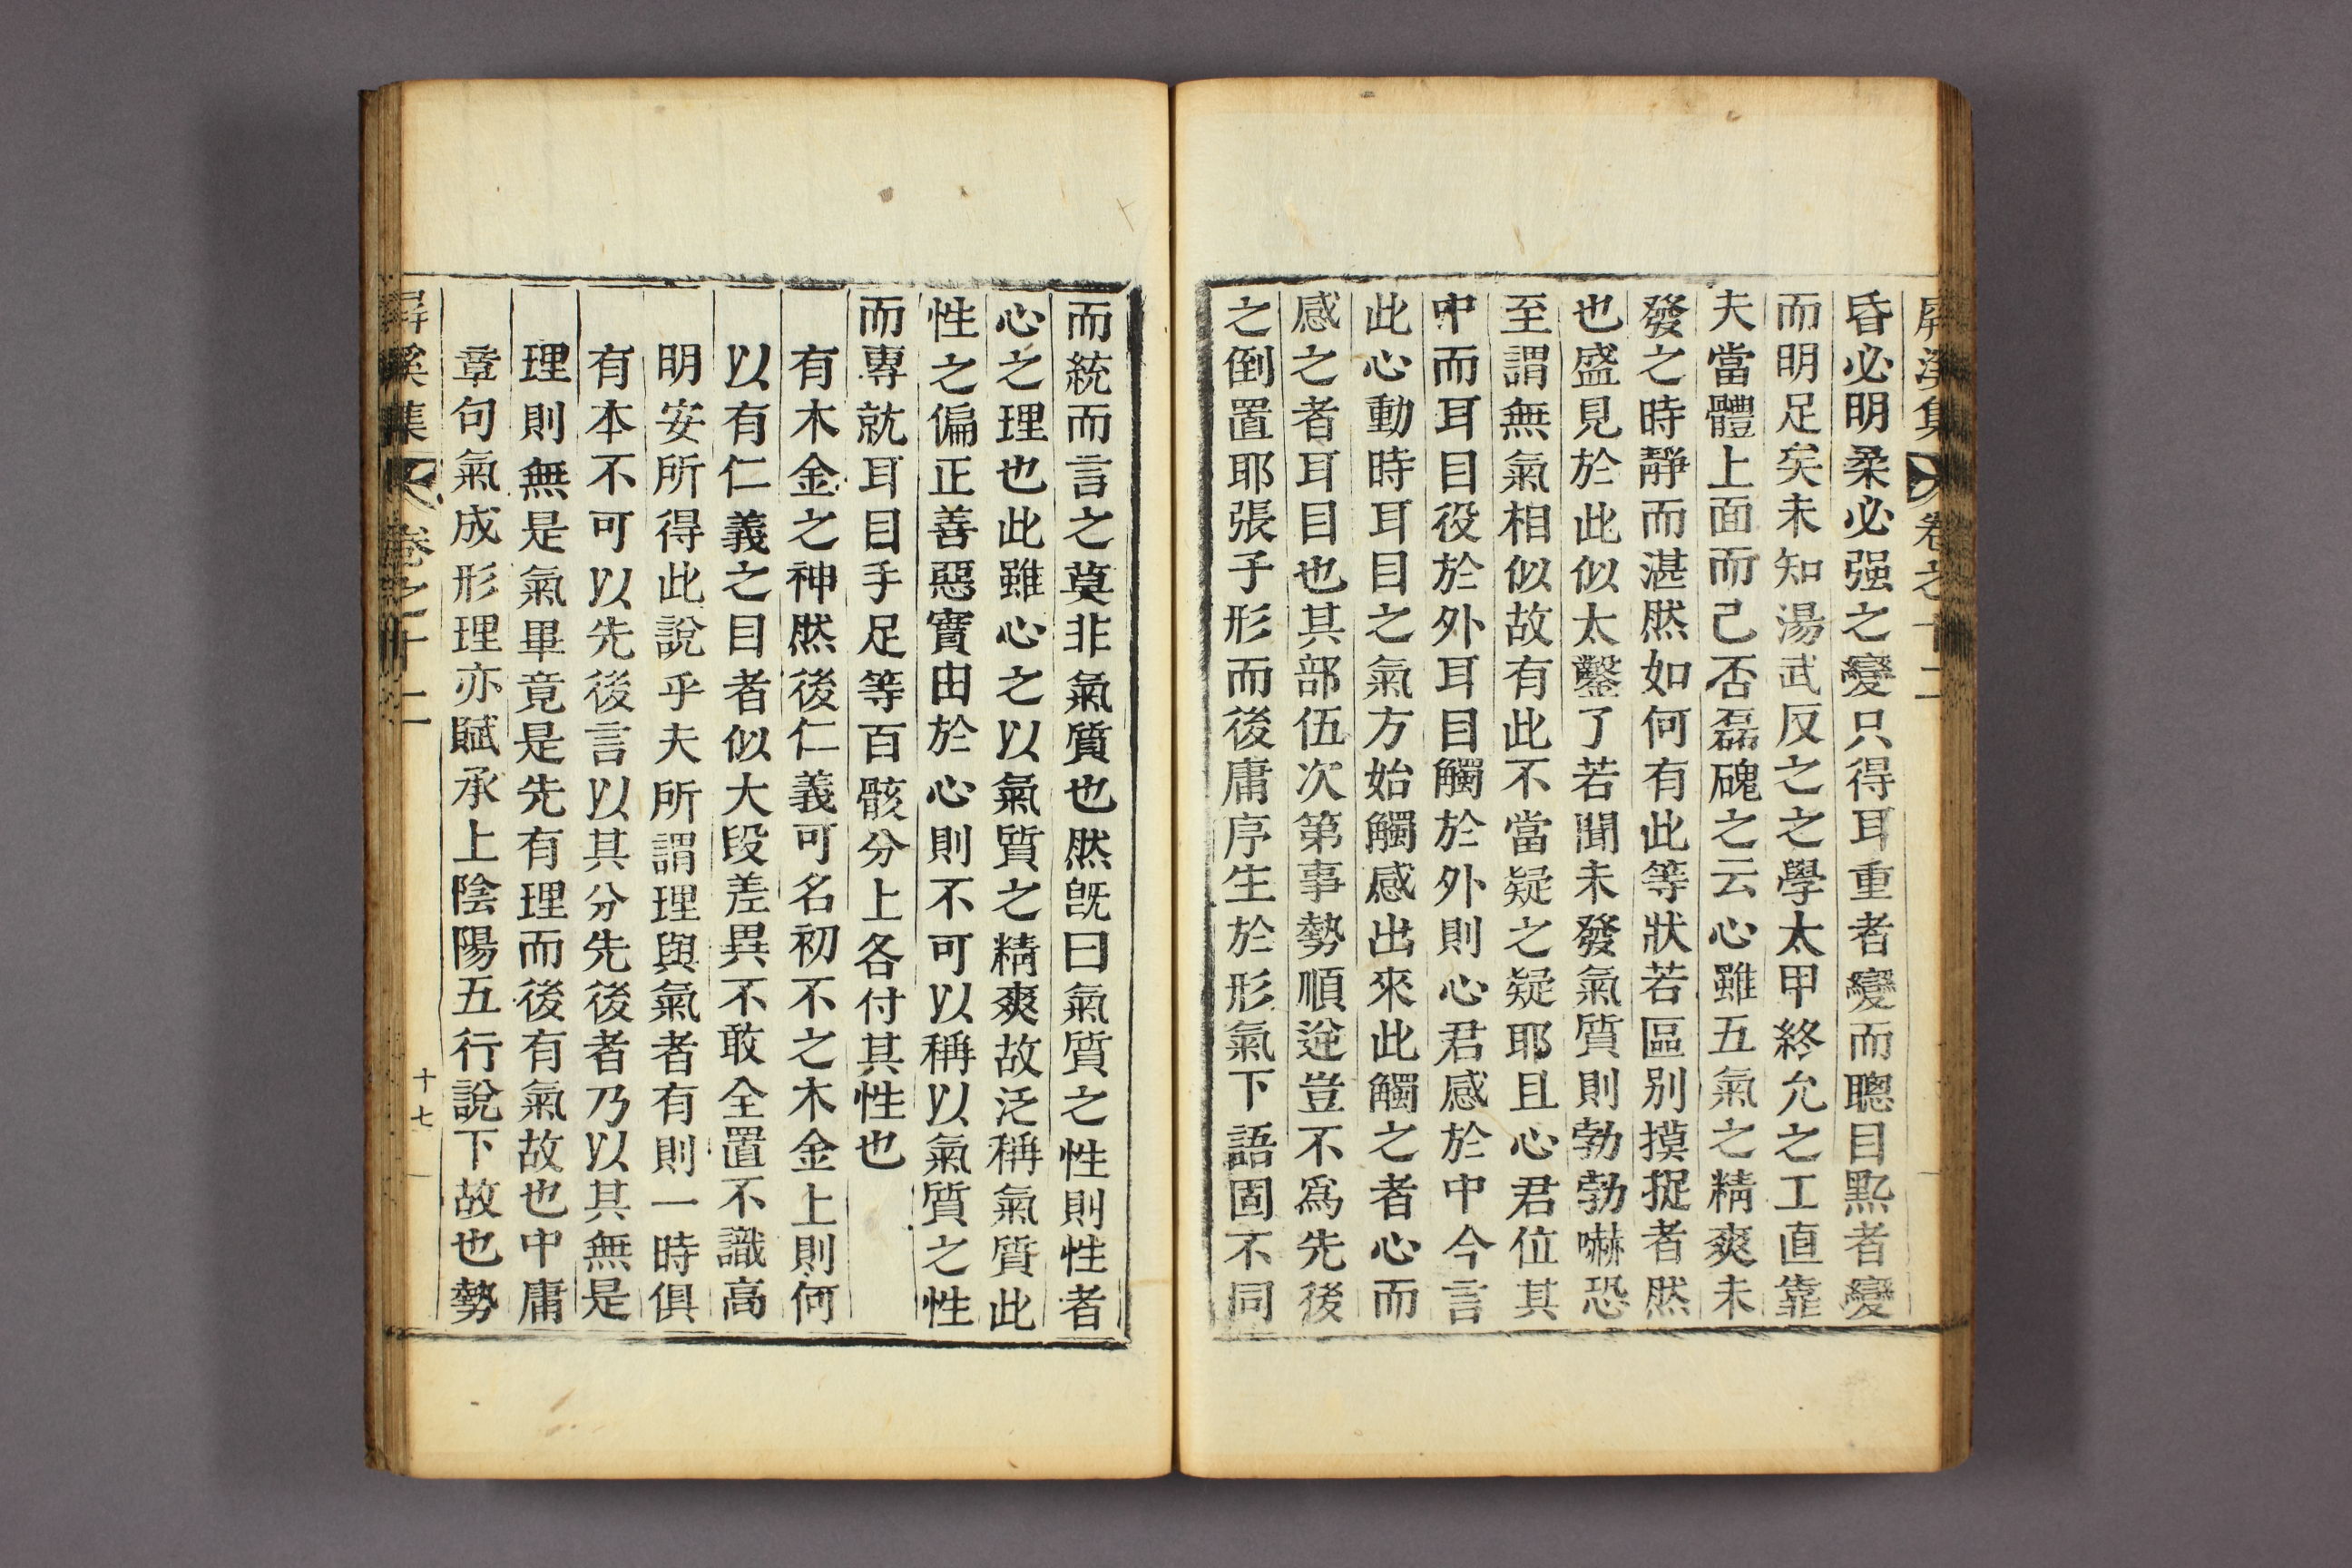 屛溪集 卷之十二
昏必明柔必强之變只得耳重者變而聰目㸃者變
而明足矣未知湯武反之之學太甲終允之工直靠
夫當體上面而已否磊磈之云心雖五氣之精爽未
發之時靜而湛然如何有此等狀若區别摸捉者然
也盛見於此似太鑿了若聞未發氣質則勃勃嚇恐
至謂無氣相似故有此不當疑之疑耶且心君位其
中而耳目役於外耳目觸於外則心君感於中今言
此心動時耳目之氣方始觸感出來此觸之者心而
感之者耳目也其部伍次第事勢順逆豈不爲先後
之倒置耶張子形而後庸序生於形氣下語固不同
而統而言之莫非氣質也然旣曰氣質之性則性者
心之理也此雖心之以氣質之精爽故泛稱氣質此
性之偏正善惡實由於心則不可以稱以氣質之性
而專就耳目手足等百骸分上各付其性也
有木金之神然後仁義可名初不之木金上則何
以有仁義之目者似大段差異不敢全置不識高
明安所得此說乎夫所謂理與氣者有則一時俱
有本不可以先後言以其分先後者乃以其無是
理則無是氣畢竟是先有理而後有氣故也中庸
章句氣成形理亦賦承上陰陽五行說下故也勢
屛溪集 卷之十二 十七